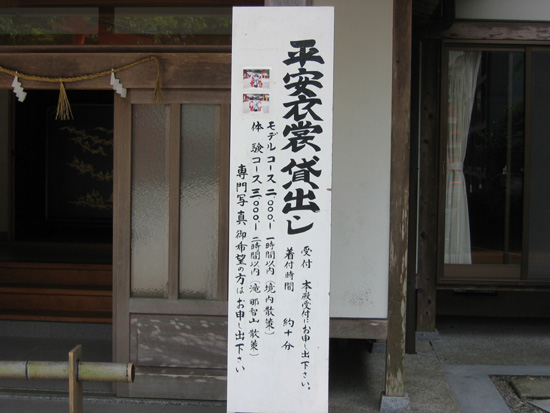 平安衣裳貸出し
受付 本殿受付にお申し出下さい。
着付時間 約十分
モデルコース 二、〇〇〇.- 一時間以内(境内散策)
体験コース 三、〇〇〇.- 二時間以内(滝、那智山散策)
専門写真御希望の方はお申し出下さい